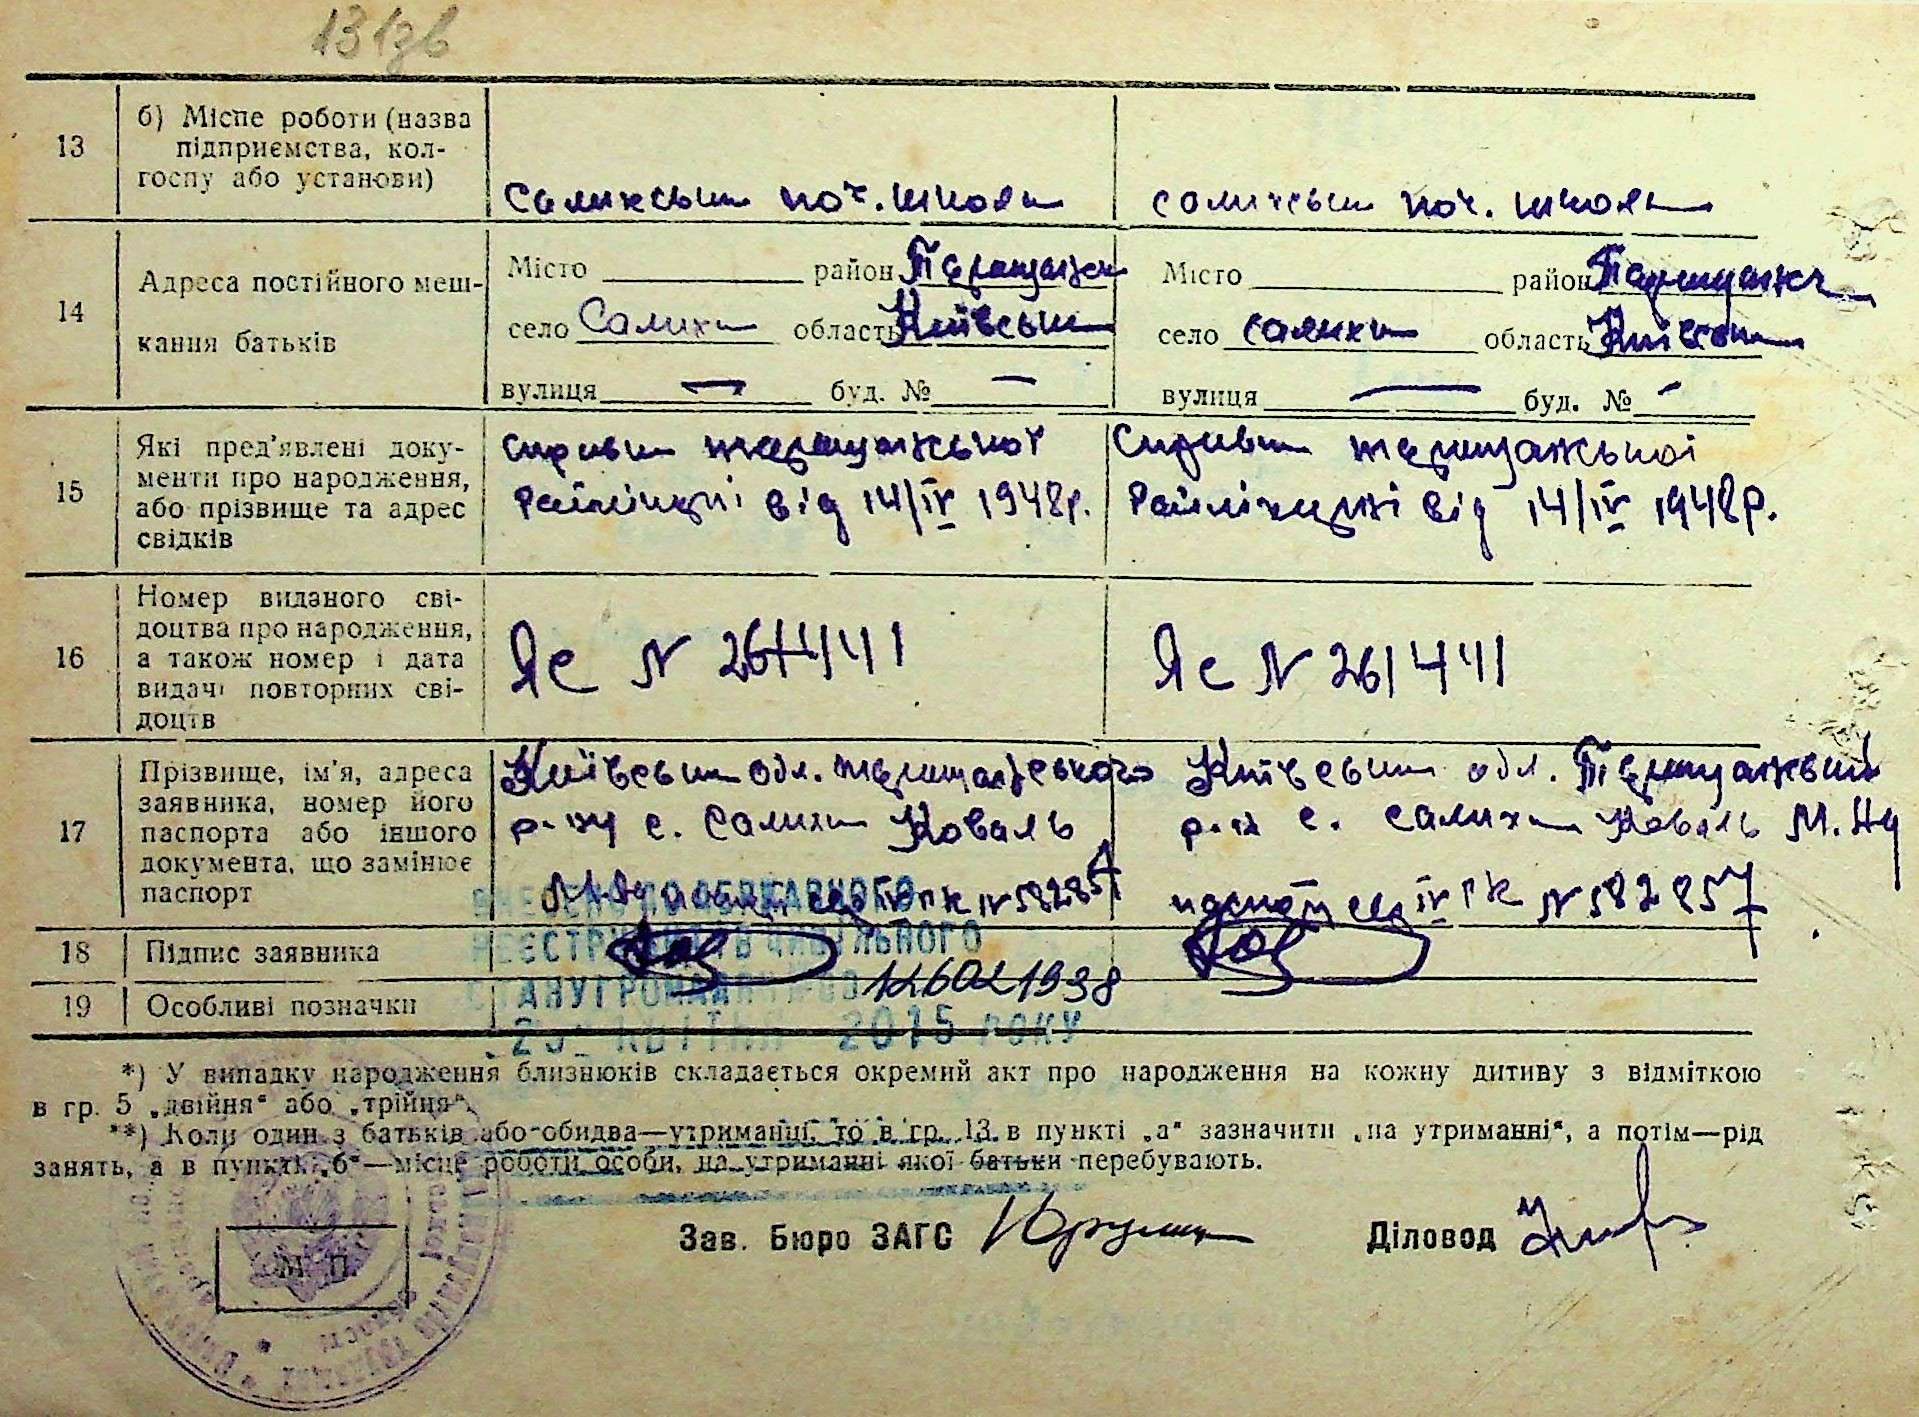 131зв
13
б) Місце роботи (назва
підприємства, кол-
госпу або установи)
Салихськи поч. школи
салихськи поч. школи
14
Адреса постійного меш-
кання батьків
Місто район Таращанськ
село Салихи область Київськи
вулиця — буд. № —
Місто район Таращанськ
село салихи область Київськи
вулиця — буд. № —
15
Які пред'явлені доку-
менти про народження,
або прізвище та адрес
свідків
Справки таращанської
Райлікарні від 14/IV 1948р.
Справки таращанської
Райлікарні від 14/IV 1948р.
16
Номер виданого сві-
доцтва про народження,
а також номер і дата
видачі повторних сві-
доцтв
ЯС N
ЯС N 261441
17
Прізвище, ім'я, адреса
заявника, номер його
паспорта або іншого
документа, що замінює
паспорт
Київськи обл. таращанського
р-ну с. Салихи Коваль
N 58285
Київськи обл. Таращанський
р-н с. салихи Коваль М.
IV РК N 582857
18
Підпис заявника
19
Особливі позначки
ВНЕСЕНО ДО ДЕРЖАВНОГО
РЕЄСТРУ АКТІВ ЦИВІЛЬНОГО
СТАНУ ГРОМАДЯН
КВІТНЯ 2015 РОКУ
*) У випадку народження близнюків складається окремий акт про народження на кожну дитину з відміткою
в гр. 5 „двійня“ або „трійця“.
**) Коли один з батьків або обидва—утриманці, то в гр. 13 в пункті „а“ зазначити „на утриманні“, а потім—рід
занять, а в пункті „б“—місце роботи особи, на утриманні якої батьки перебувають.
Зав. Бюро ЗАГС
Діловод
М. П.